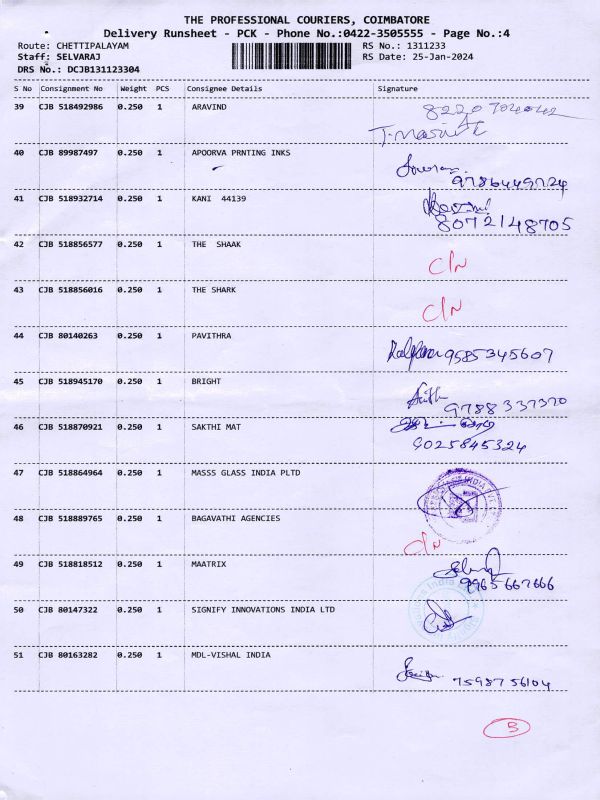 THE PROFESSIONAL COURIERS, COIMBATORE
Delivery Runsheet - PCK - Phone No.:0422-3505555 - Page No.:4
Route: CHETTIPALAYAM RS No.: 1311233
Staff: SELVARAJ RS Date: 25-Jan-2024
DRS No.: DCJB131123304
S No Consignment No Weight PCS Consignee Details Signature
39 CJB 518492986 0.250 1 ARAVIND
40 CJB 89987497 0.250 1 APOORVA PRNTING INKS
9786449724
41 CJB 518932714 0.250 1 KANI 44139
8072148705
42 CJB 518856577 0.250 1 THE SHAAK
C/N
43 CJB 518856016 0.250 1 THE SHARK
C/N
44 CJB 80140263 0.250 1 PAVITHRA
9585345607
45 CJB 518945170 0.250 1 BRIGHT
9788337370
46 CJB 518870921 0.250 1 SAKTHI MAT
9025845324
47 CJB 518864964 0.250 1 MASSS GLASS INDIA PLTD
48 CJB 518889765 0.250 1 BAGAVATHI AGENCIES
C/N
49 CJB 518818512 0.250 1 MAATRIX
9965667666
50 CJB 80147322 0.250 1 SIGNIFY INNOVATIONS INDIA LTD
51 CJB 80163282 0.250 1 MDL-VISHAL INDIA
7598756104